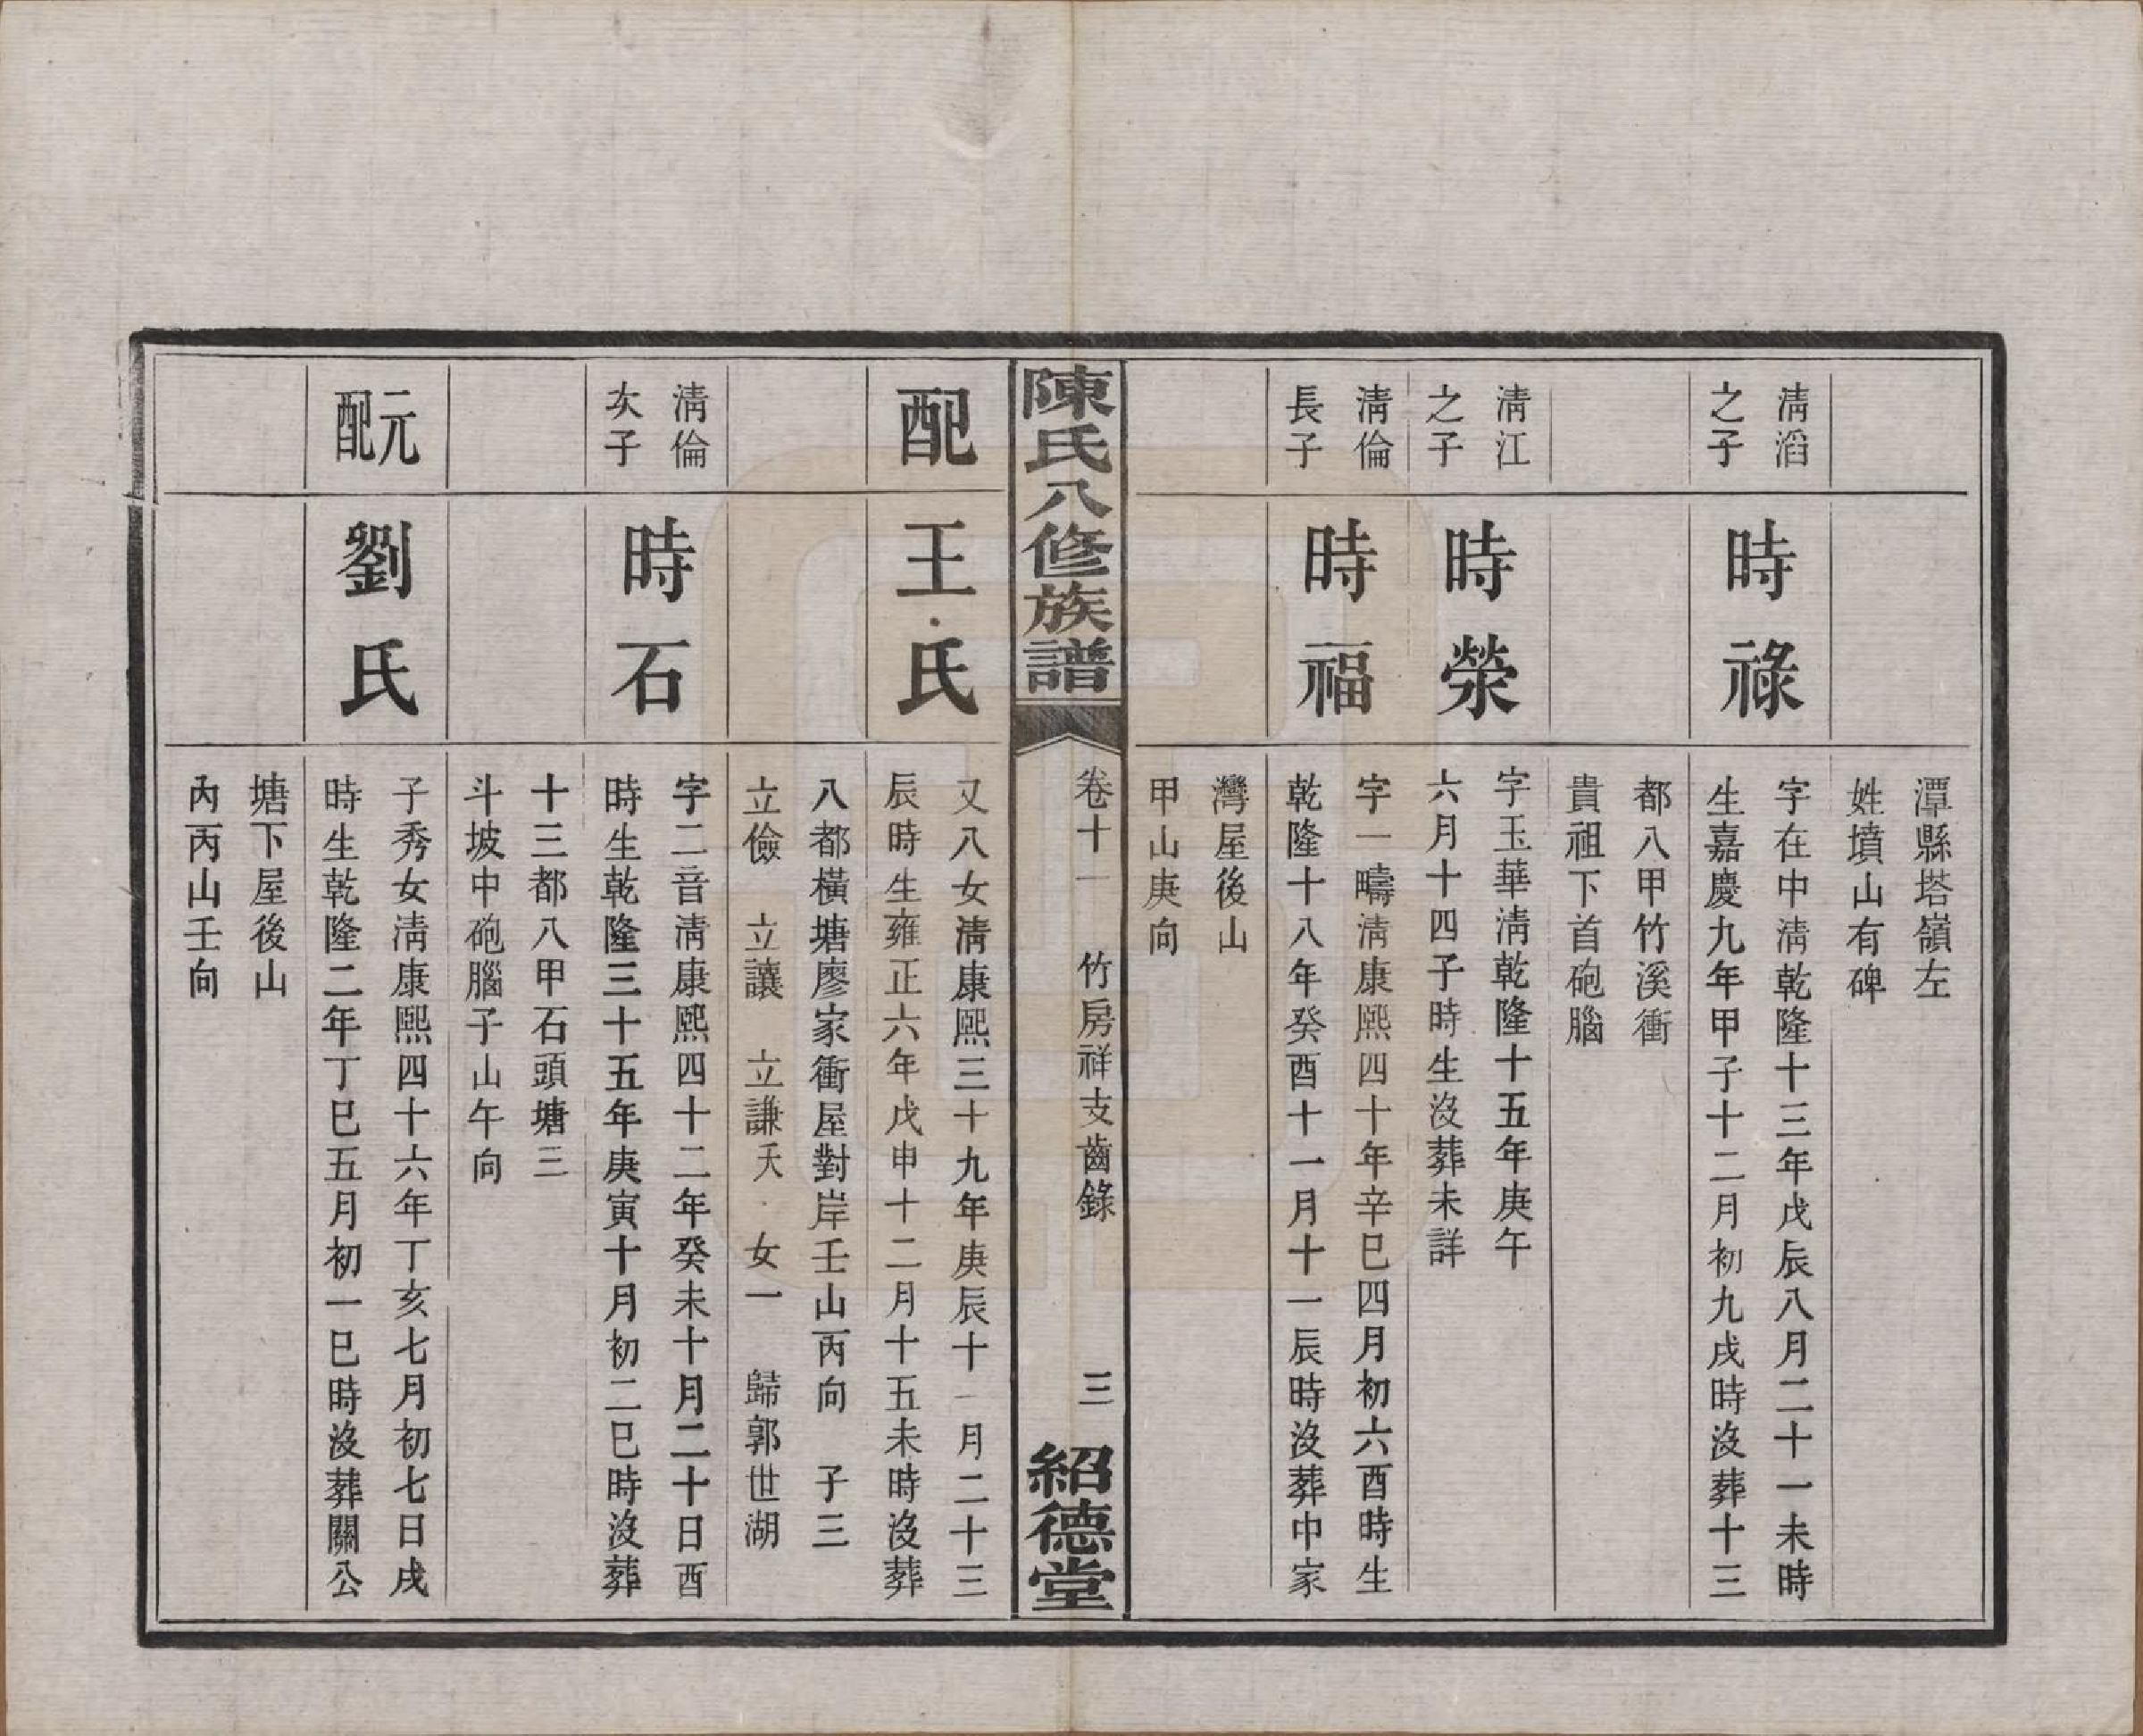 潭縣塔嶺左
姓墳山有碑
清滔
之子
時祿
字在中淸乾隆十三年戊辰八月二十一未時
生嘉慶九年甲子十二月初九戌時沒葬十三
都八甲竹溪衝
貴祖下首砲腦
清江
之子
時榮
字玉華淸乾隆十五年庚午
六月十四子時生沒葬未詳
清倫
長子
時福
字一疇淸康熙四十年辛巳四月初六酉時生
乾隆十八年癸酉十一月十一辰時沒葬中家
灣屋後山
甲山庚向
陳氏八修族譜
卷十一 竹房祥支齒錄
三
紹德堂
配
王氏
又八女淸康熙三十九年庚辰十一月二十三
辰時生雍正六年戊申十二月十五未時沒葬
八都橫塘廖家衝屋對岸壬山丙向 子三
立儉 立讓 立謙夭 女一 歸郭世湖
清倫
次子
時石
字二音淸康熙四十二年癸未十月二十日酉
時生乾隆三十五年庚寅十月初二巳時沒葬
十三都八甲石頭塘三
斗坡中砲腦子山午向
元配
劉氏
子秀女淸康熙四十六年丁亥七月初七日戌
時生乾隆二年丁巳五月初一巳時沒葬關公
塘下屋後山
內丙山壬向